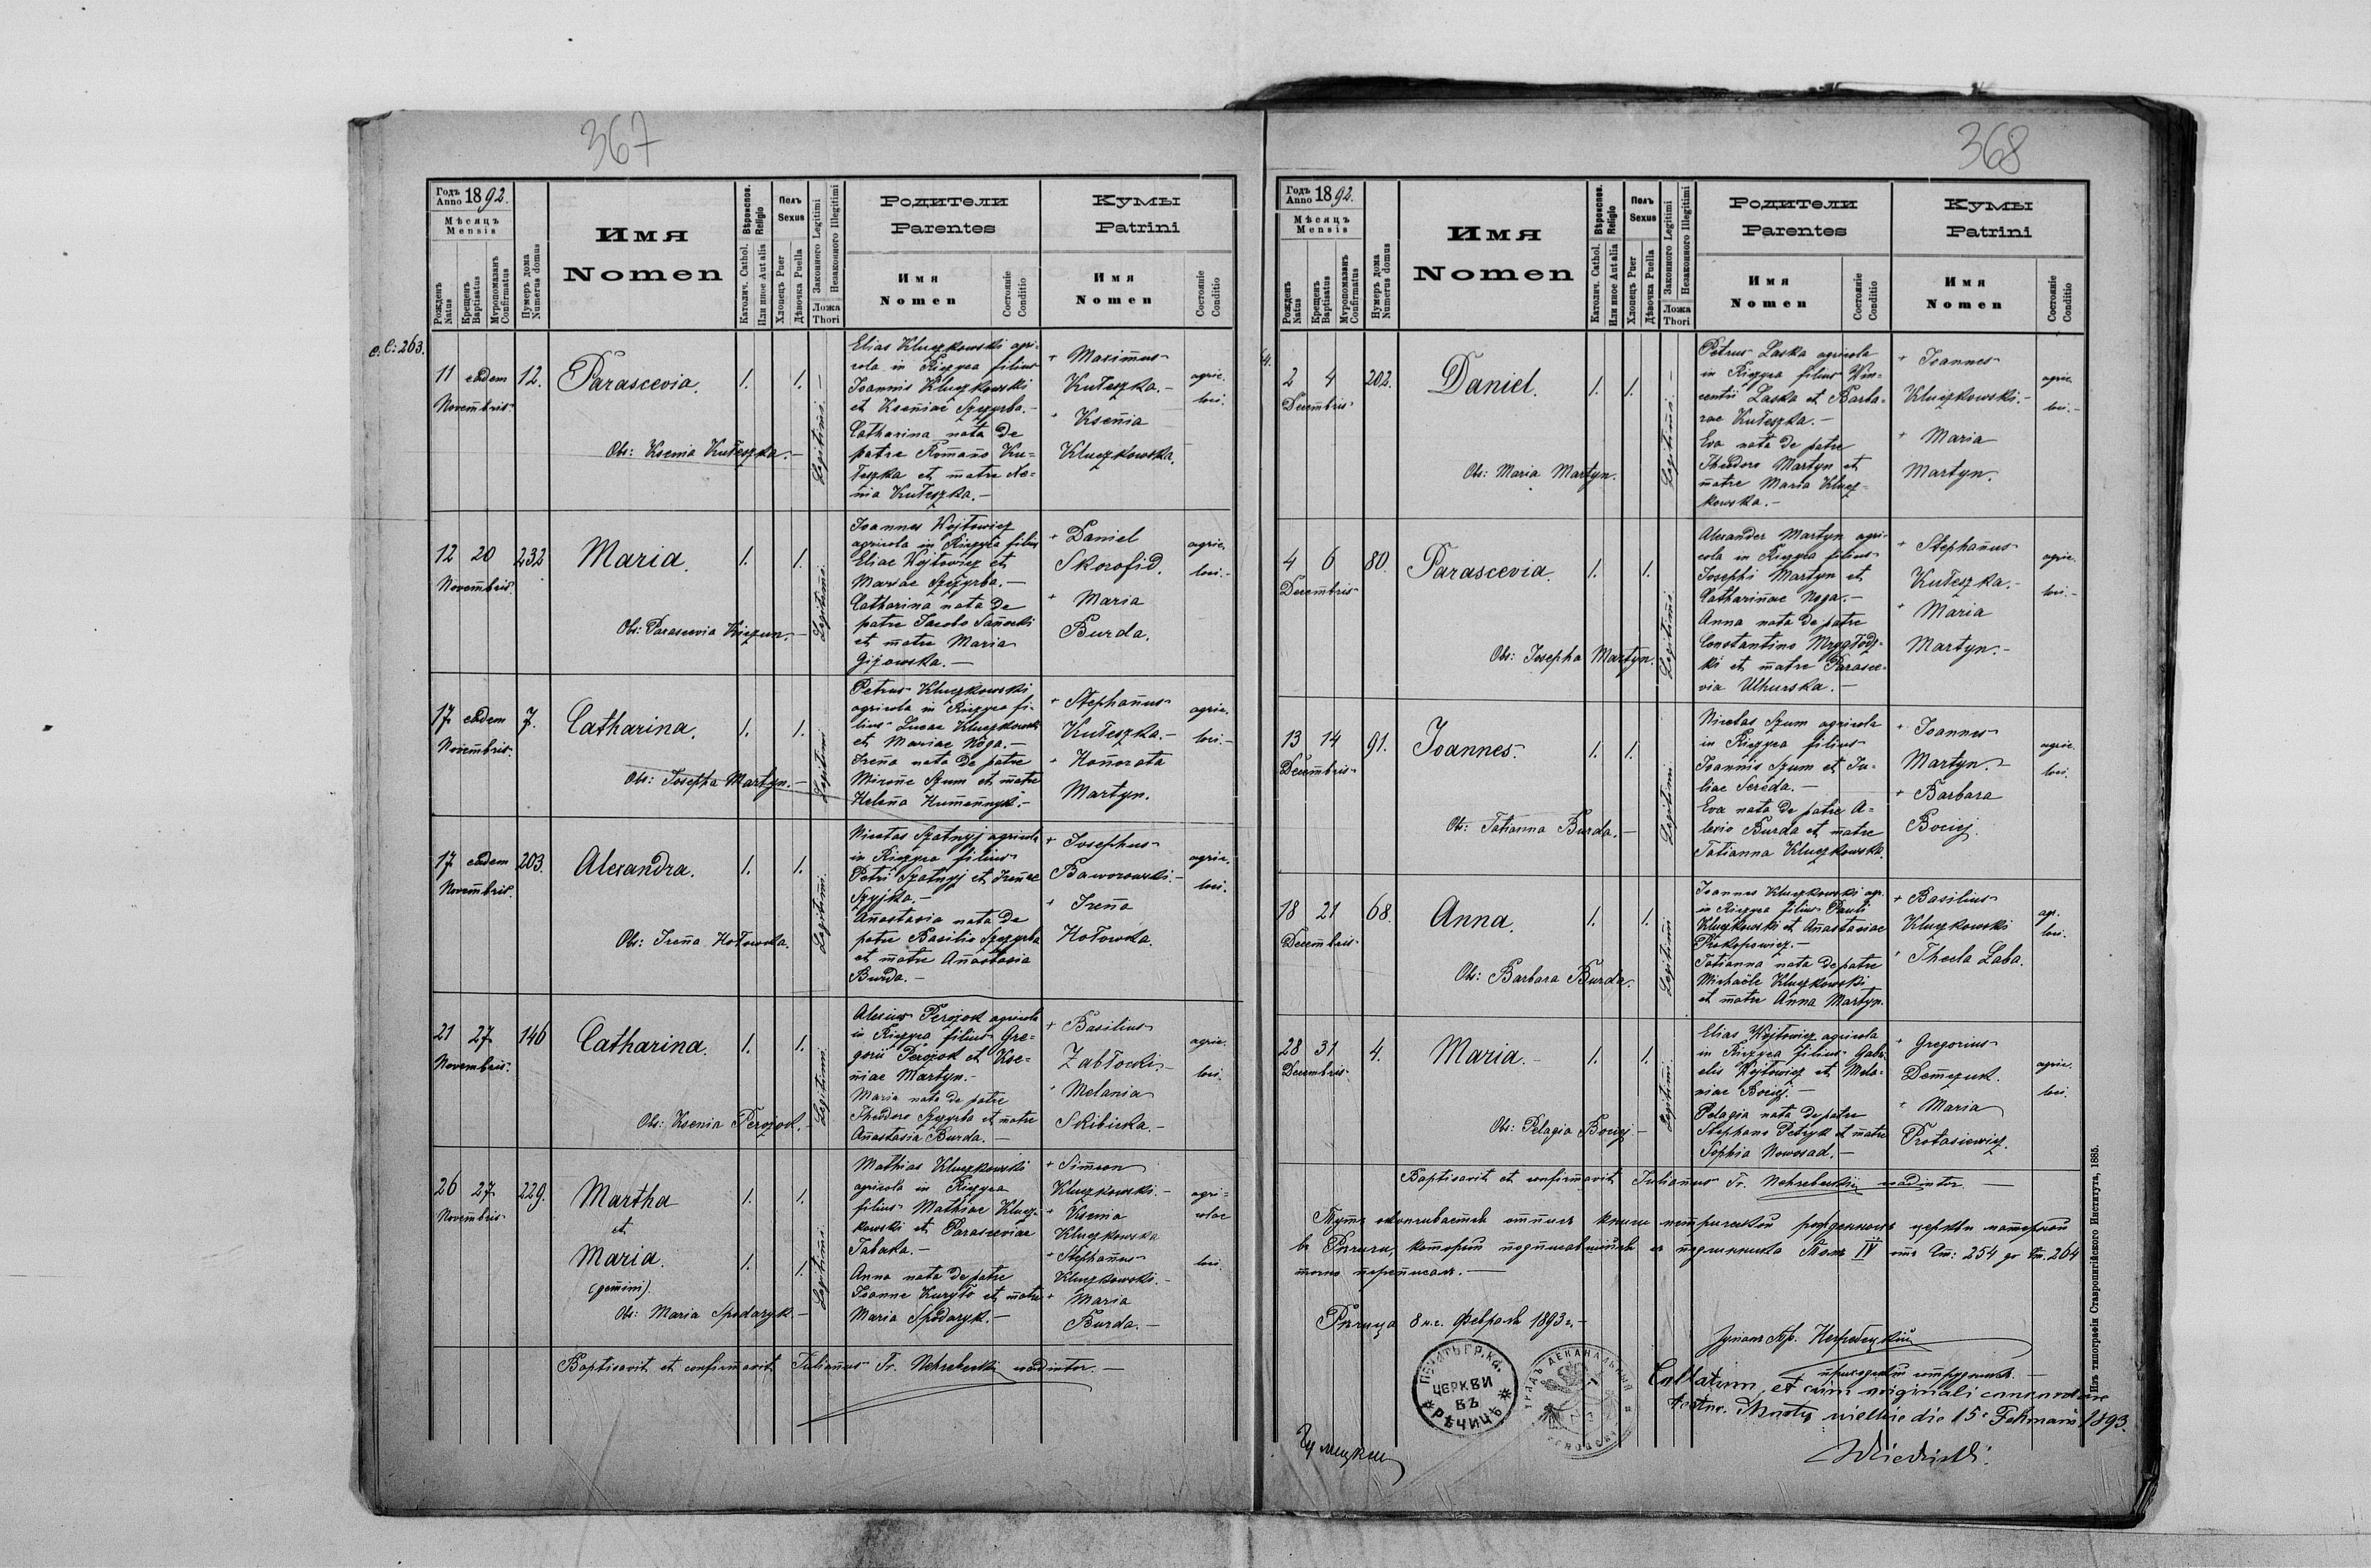 367
Годъ Anno 1892.
Мѣсяцъ Mensis
Рожденъ Natus
Крещенъ Baptisatus
Муропомазанъ Confirmatus
Нумеръ дома Numerus domus
Имя
Nomen
Вѣроиспов. Religio
Католич. Cathol.
Или иное Aut alia
Полъ Sexus
Хлопецъ Puer
Дѣвочка Puella
Законного Legitimi
Незаконного Illegitimi
Ложа Thori
Родители
Parentes
Имя Nomen
Состояніе Conditio
Кумы
Patrini
Имя Nomen
Состояніе Conditio
11 eadem 12.
Novembris
Parascevia. 1. 1.
Obs: Ksenia Kuteszka.
Legitimi.
Elias Kluczkowski agri-
cola in Riczyca filius
Joannis Kluczkowski
et Kseniae Szczyrba.
Catharina nata de
patre Romano Ku-
teszka et matre
Kuteszka.
+ Maximus
Kuteszka.
+ Ksenia
Kluczkowska.
agric.
loci.
12 20 232
Novembris
Maria. 1. 1.
Obs: Parascevia
Legitimi.
Joannes Wojtowicz
agricola in Riczyca filius
Eliae Wojtowicz et
Mariae Szczyrba.
Catharina nata de
patre Jacobo Sanocki
et matre Maria
Gizowska.
+ Daniel
Skorofid.
+ Maria
Burda.
agric.
loci.
17 eadem 7.
Novembris
Catharina. 1. 1.
Obs: Josepha Martyn.
Legitimi
Petrus Kluczkowski
agricola in Riczyca fi-
lius Lucae Kluczkowski
et Mariae Noga.
Irena nata de patre
Mirone Szum et matre
Helena Humennyk.
+ Stephanus
Kuteszka.
+ Honorata
Martyn.
agric.
loci.
17 eadem 203.
Novembris
Alexandra. 1. 1.
Obs: Irena Hołowka.
Legitimi.
Nicetas Szatnyj agricola
in Riczyca filius
Petri Szatnyj et Irenae
Szyjka.
Anastasia nata de
patre Basilio Szczyrba
et matre Anastasia
Burda.
+ Josephus
Baworowski.
+ Irena
Hołowka.
agric.
loci.
21 27 146
Novembris
Catharina. 1. 1.
Obs: Ksenia Perozok.
Legitimi.
Alexius Perozok agricola
in Riczyca filius Gre-
gorii Perozok et Kse-
niae Martyn.
Maria nata de patre
Theodoro Szczyrba et matre
Anastasia Burda.
+ Basilius
Zabłocki
+ Melania
Skibicka.
agric.
loci.
26 27 229.
Novembris
Martha 1. 1.
et
Maria. 1. 1.
(gemini).
Obs: Maria Spodaryk.
Legitimi.
Mathias Kluczkowski
agricola in Riczyca
filius Mathiae Klucz-
kowski et Parasceviae
Anna nata de patre
Joanne Kuryło et matre
Maria Spodaryk.
+ Simeon
Kluczkowski.
+ Ksenia
Kluczkowska
+ Stephanus
Kluczkowski.
+ Maria
Burda.
agri-
colae
loci.
Baptisavit et confirmavit Julianus Tr. Nehrebecki
368
Годъ Anno 1892.
Мѣсяцъ Mensis
Рожденъ Natus
Крещенъ Baptisatus
Муропомазанъ Confirmatus
Нумеръ дома Numerus domus
Имя
Nomen
Вѣроиспов. Religio
Католич. Cathol.
Или иное Aut alia
Полъ Sexus
Хлопецъ Puer
Дѣвочка Puella
Законного Legitimi
Незаконного Illegitimi
Ложа Thori
Родители
Parentes
Имя Nomen
Состояніе Conditio
Кумы
Patrini
Имя Nomen
Состояніе Conditio
2 4 202.
Decembris
Daniel. 1. 1.
Obs: Maria Martyn.
Legitimi.
Petrus Laska agricola
in Riczyca filius Vin-
centii Laska et Barba-
rae Kuteszka.
Eva nata de patre
Theodoro Martyn et
matre Maria Klucz-
kowska.
+ Joannes
Kluczkowski.
+ Maria
Martyn.
agric.
loci.
4 6 80.
Decembris
Parascevia. 1. 1.
Obs: Josepha Martyn.
Legitimi.
Alexander Martyn agri-
cola in Riczyca filius
Josephi Martyn et
Catharinae Noga.
Anna nata de patre
Constantino Mrygłodz-
ki et matre Parasce-
via Uhurska.
+ Stephanus
Kuteszka.
+ Maria
Martyn.
agric.
loci.
13 14 91.
Decembris
Joannes. 1. 1.
Obs: Tatianna Burda.
Legitimi.
Nicetas Szum agricola
in Riczyca filius
Joannis Szum et Ju-
liae Sereda.
Eva nata de patre A-
lexio Burda et matre
Tatianna Kluczkowska.
+ Joannes
Martyn.
+ Barbara
Bociej.
agric.
loci.
18 21 68.
Decembris
Anna. 1. 1.
Obs: Barbara Burda.
Legitimi
Joannes Kluczkowski agr.
in Riczyca filius Pauli
Kluczkowski et Anastasiae
Prokopowicz.
Tatianna nata de patre
Michaële Kluczkowski
et matre Anna Martyn.
+ Basilius
Kluczkowski
+ Thecla Laba.
agr.
loci.
28 31 4.
Decembris
Maria. 1. 1.
Obs: Pelagia Bociej.
Legitimi.
Elias Wojtowicz agricola
in Riczyca filius Gabri-
elis Wojtowicz et Mela-
niae Bociej.
Pelagia nata de patre
Stephano Petryk et matre
Sophia Nowosad.
+ Gregorius
Demczuk.
+ Maria
Protasiewicz.
agric.
loci.
Baptisavit et confirmavit Julianus Tr. Nehrebecki
254 до 264
Рѣчица 8 н.с. Февраля 1893 г.
Печать гр. ка. церкви въ Рѣчицѣ
Collatum et cum originali
die 15 1893.
Изъ типографіи Ставропигійского Института, 1885.